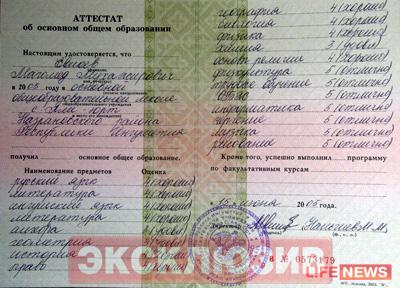 АТТЕСТАТ
об основном общем образовании
Настоящим удостоверяется, что
Евлоев
в 2005 году в основной
общеобразовательной школе
Назрановского района
Республики Ингушетия
получил основное общее образование.
Наименования предметов Оценки
русский язык 4 (хорошо)
литература 4 (хорошо)
английский язык 4 (хорошо)
литература 4 (хорошо)
алгебра 3 (удовл)
геометрия 3 (удовл)
история
право
география 4 (хорошо)
биология 4 (хорошо)
физика 4 (хорошо)
химия 3 (удовл)
основы религии 4 (хорошо)
физкультура 5 (отлично)
трудовое обучение 5 (отлично)
ОБЖ 5 (отлично)
информатика 5 (отлично)
черчение 5 (отлично)
музыка 5 (отлично)
рисование 5 (отлично)
Кроме того, успешно выполнил программу
по факультативным курсам
15 июня 2005 года.
Директор
В № 0573179
ЭКСКЛЮЗИВ
LIFE NEWS